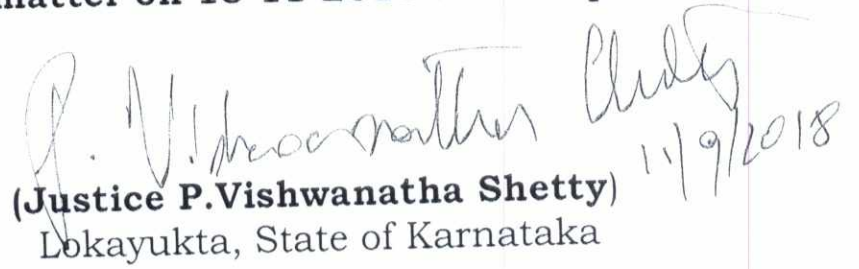 matter on
P. Vishwanatha Shetty
11/9/2018
(Justice P.Vishwanatha Shetty)
Lokayukta, State of Karnataka